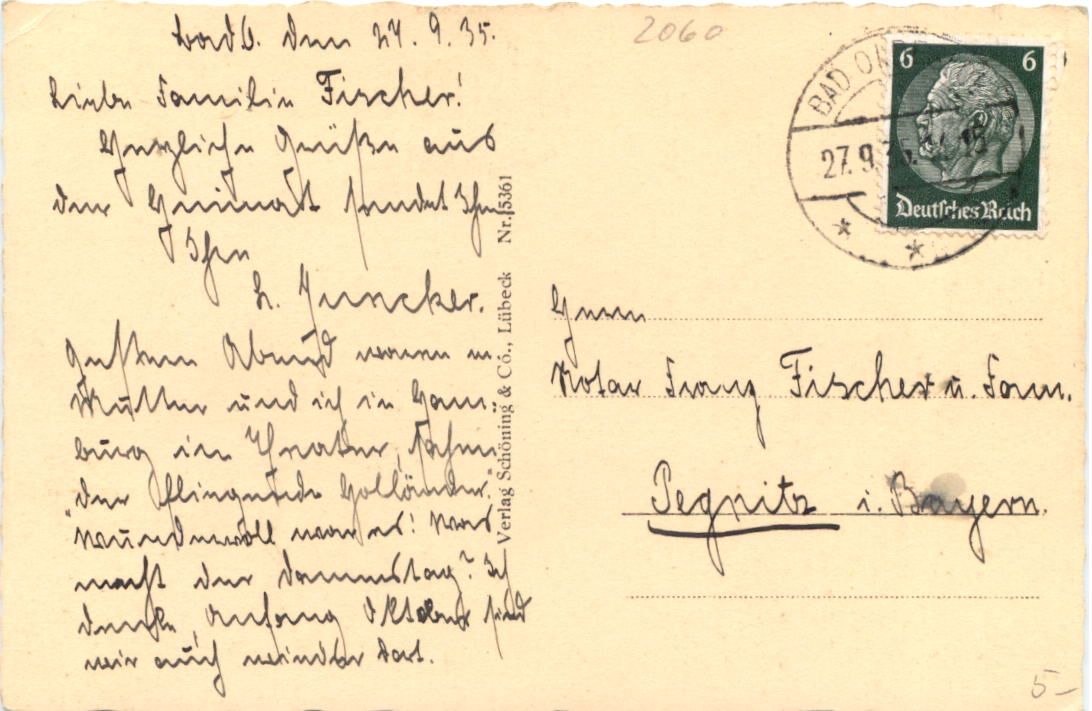 Bad O. den 27. 9. 35.
Liebe Familie Fischer!
Herzliche Grüße aus
der Heimat sendet Ihnen
Ihr
H. Juncker.
Gestern Abend waren m.
Mutter und ich in Ham-
burg im Theater, sahen
"der fliegende Holländer."
Wundervoll war es! Was
macht der Dammstag? Ich
denke, Anfang Oktober sind
wir auch wieder dort.
Verlag Schöning & Co., Lübeck Nr. 5361
2060
BAD
27.9.
6 6
Deutsches Reich
Herrn
Notar Franz Fischer u. Fam.
Pegnitz i. Bayern.
5-